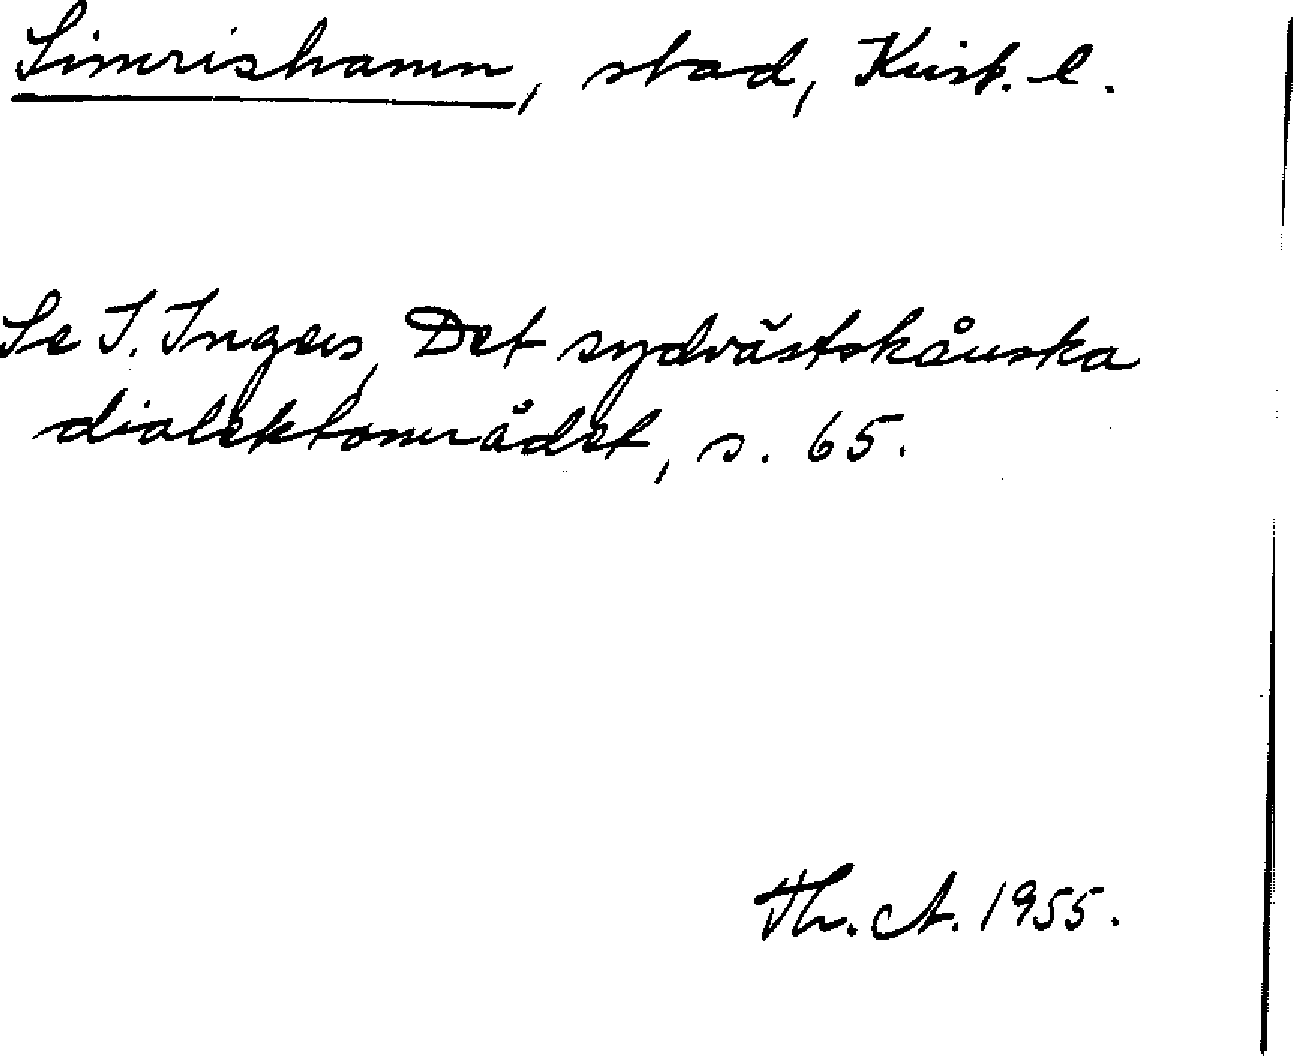 Simrishamn, stad, Krist. l.
Se I. Ingers, Det sydvästskånska
dialektområdet, s. 65.
Th. A. 1955.